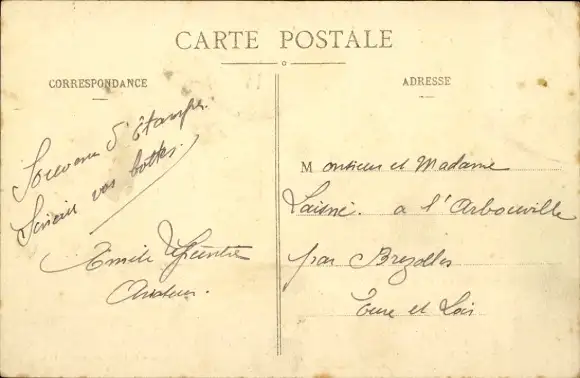 CARTE POSTALE
CORRESPONDANCE
ADRESSE
Souvenir d'Étampes.
vos bottes.
Emile
Aviateur.
Monsieur et Madame
Laisné. a l'Arbouville
par Brezolles
Eure et Loir